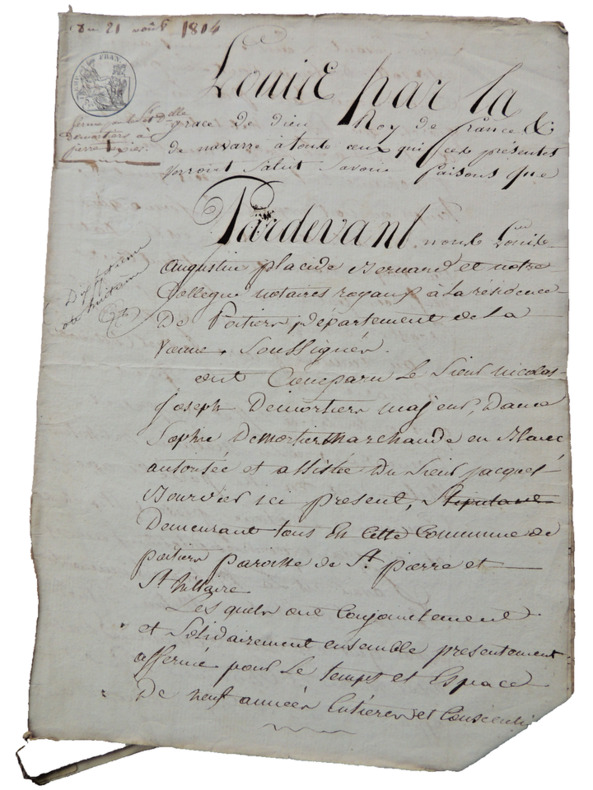 Du 21 août 1814
Louis par la
ferme par les D.elle
grace de dieu Roy de france &
demortiers à
de navarre à tous ceux qui ces présentes
pierre
verront Salut Savoir faisons que
Pardevant nous Louis
Augustin placide Bernard et notre
Collegue notaires royaux à la résidence
De Poitiers département de la
vienne, Soussignés.
ont Comparu Le Sieur nicolas
joseph Demortiers majeur, Dame
Sophie Demortier Marchande en
autorisée et assistée du Sieur jacques
Bouvier ici present, Stipulans
Demeurant tous En Cette Commune de
poitiers paroisse de St. pierre et
St hillaire
Les quels ont Conjointement
et Solidairement ensemble presentement
affermé pour Le temps et Espace
De neuf années Entieres et Consecuti